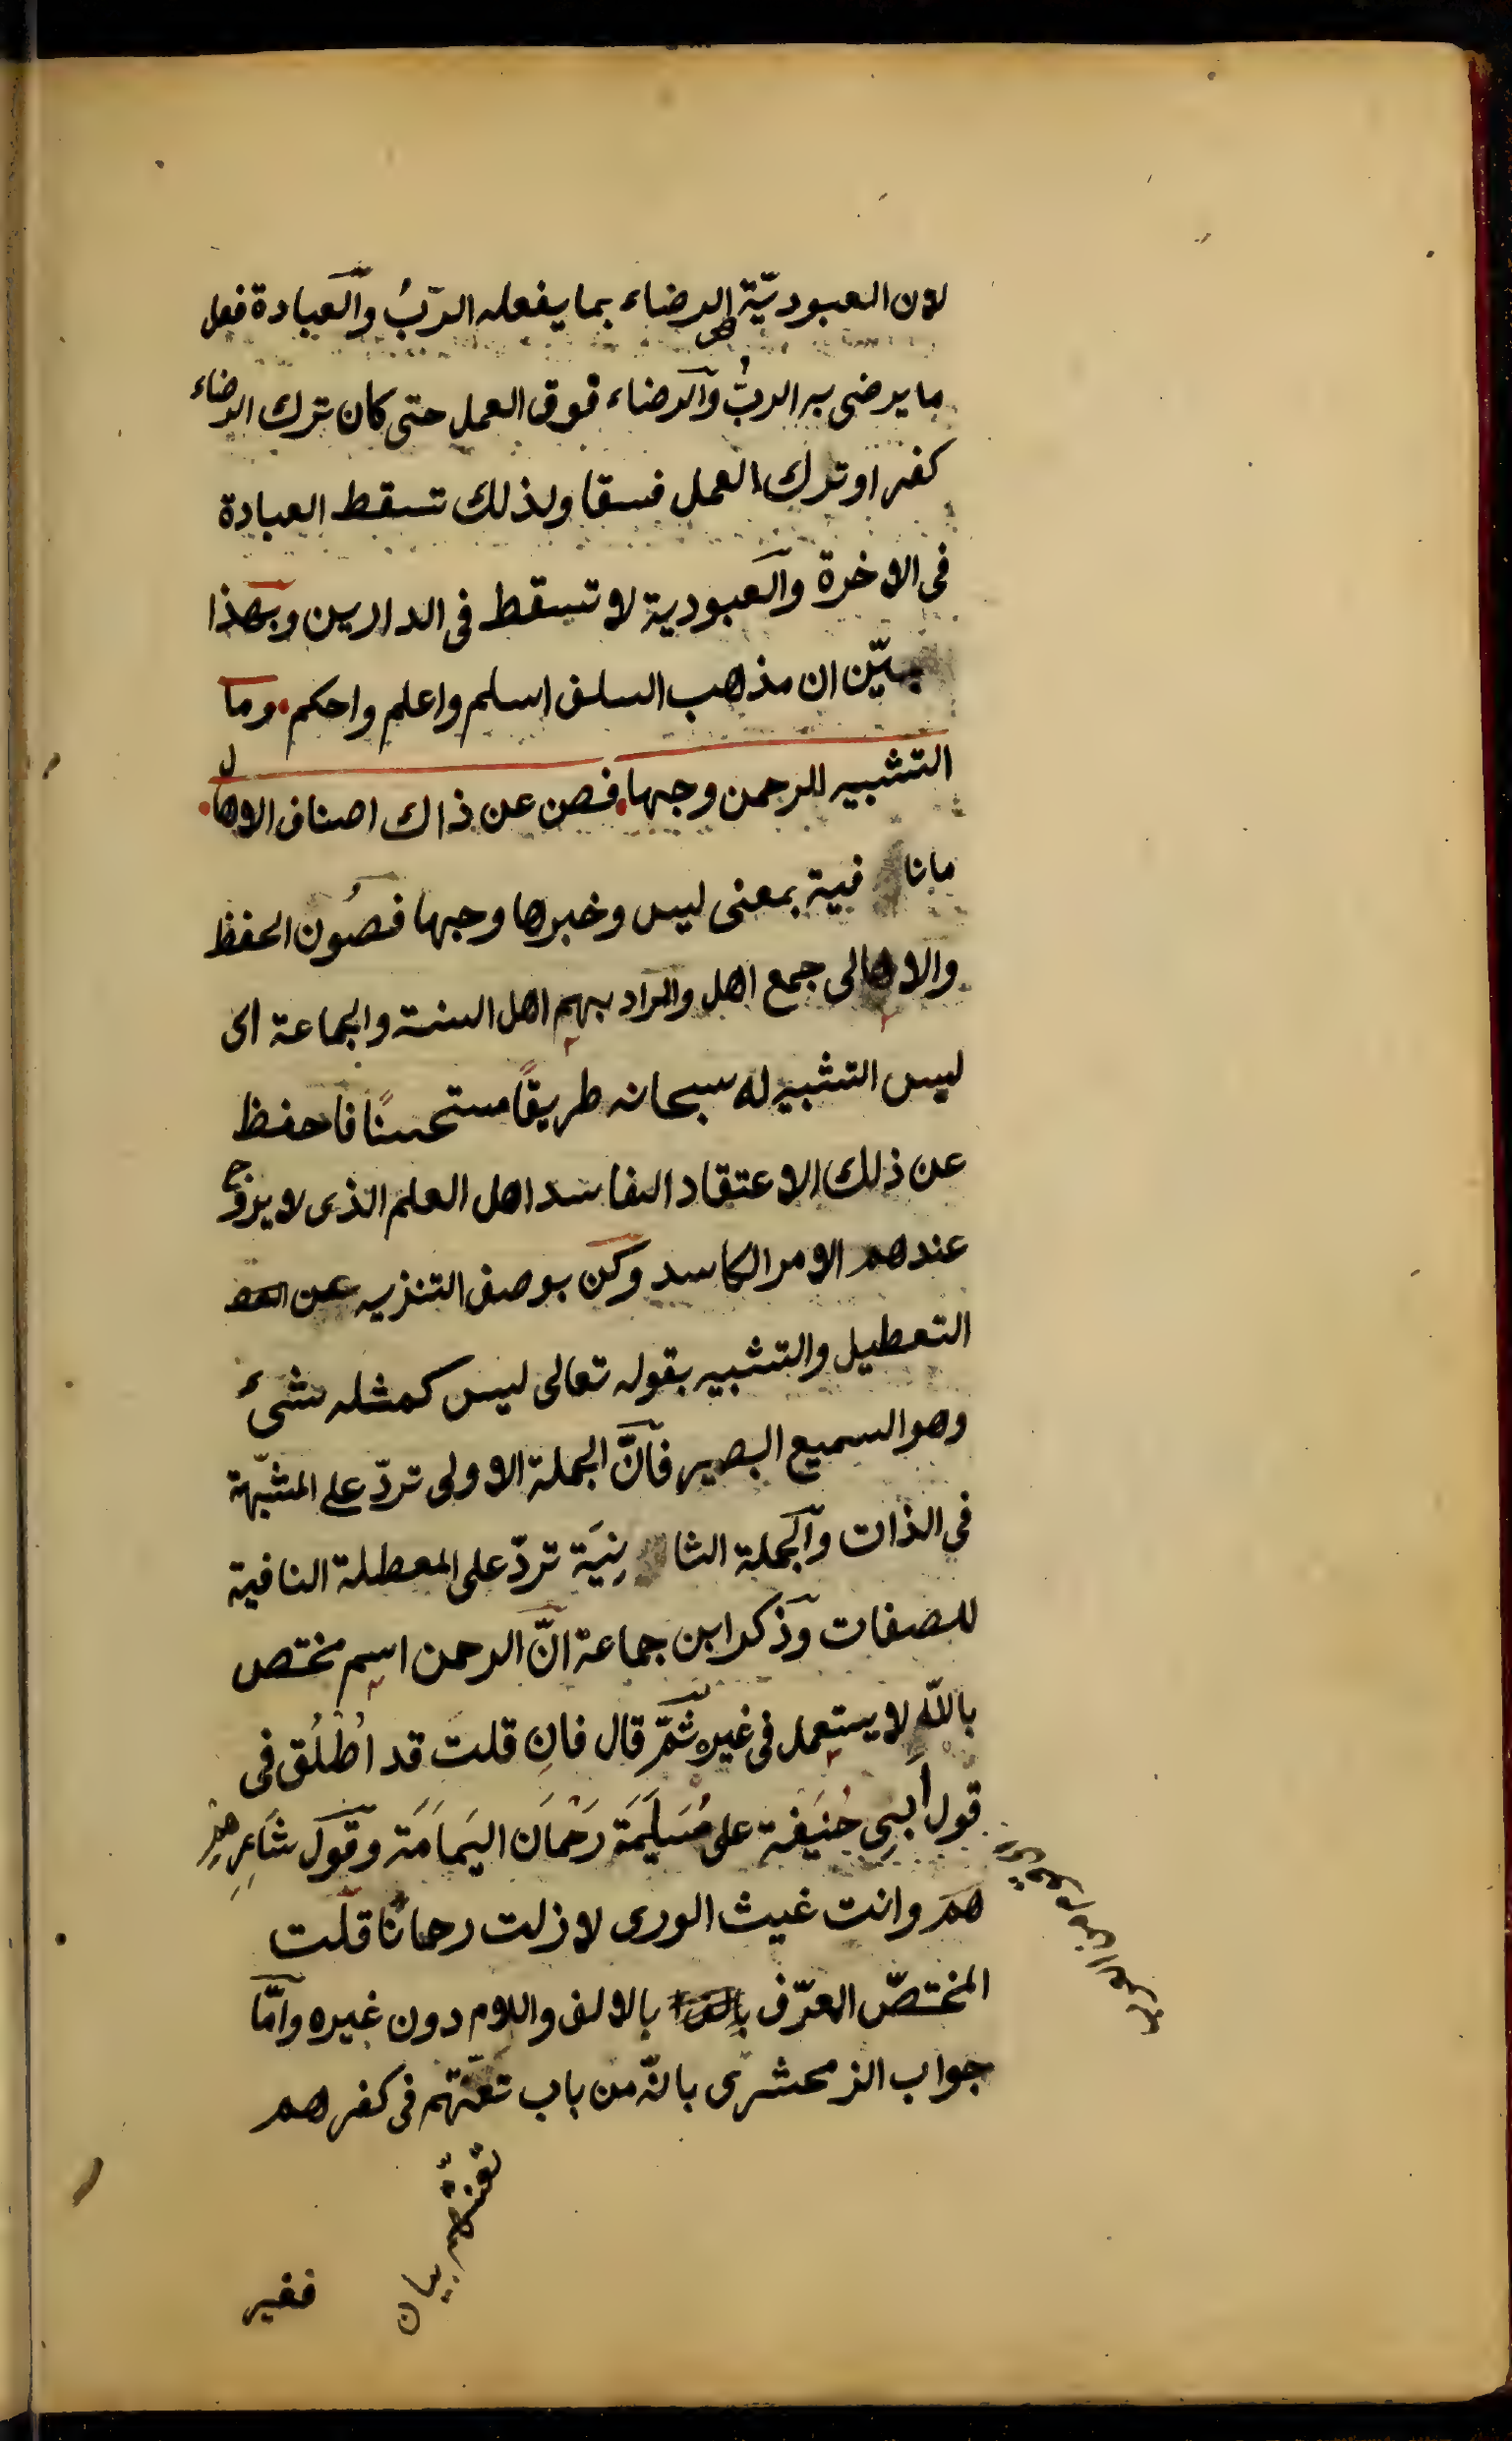 لان العبوديّة هى الرضاء بما يفعله الرّبُ والعبادة فعل
ما يرضى به الربُّ والرضاء فوق العمل حتى كان ترك الرضاء
كفرا وترك العمل فسقا ولذلك تسقط العبادة
فى الاخرة والعبودية لا تسقط فى الدارين وبهذا
يبيّن ان مذهب السلف اسلم واعلم واحكم وما
التشبيه للرحمن وجها فصن عن ذاك اصناف الاهال
ما نافية بمعنى ليس وخبرها وجها فصُون الحفظ
والاهالى جمع اهل والمراد بهم اهل السنة والجماعة اى
ليس التشبيه له سبحانه طريقًا مستحسنًا فاحفظ
عن ذلك الاعتقاد الفاسد اهل العلم الذى لا يروج
عندهم الامر الكاسد وكن بوصف التنزيه عن
التعطيل والتشبيه بقوله تعالى ليس كمثله شىء
وهو السميع البصير فانَّ الجملة الاولى تردّ على المشبّهة
فى الذات والجملة الثانِيَة تردّ على المعطلة النافية
للصفات وذكر ابن جماعة انّ الرحمن اسم مختص
باللّه لا يستعمل فى غيره ثمّ قال فان قلت قد اُطْلُق فى
قول اَبِى حُنَيفة على مُسَيلَمَة رَحْمَان اليَمامَة وقول شَاعِرهِمْ
هم وانت غيث الورى لا زلت رحمانًا قلت
المختصّ المعرّف بالالف واللام دون غيره وامّا
جواب الزمحشرى بانّه من باب تعنّتهم فى كفرهم
تعنتهم بيان
فغير